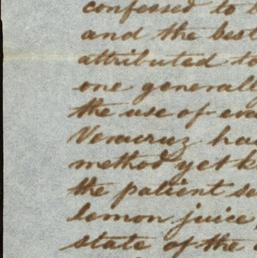 confessed to
and the best
attributed to
one generall
the use of
Veracruz ha
method yet k
the patient
lemon juice,
state of the